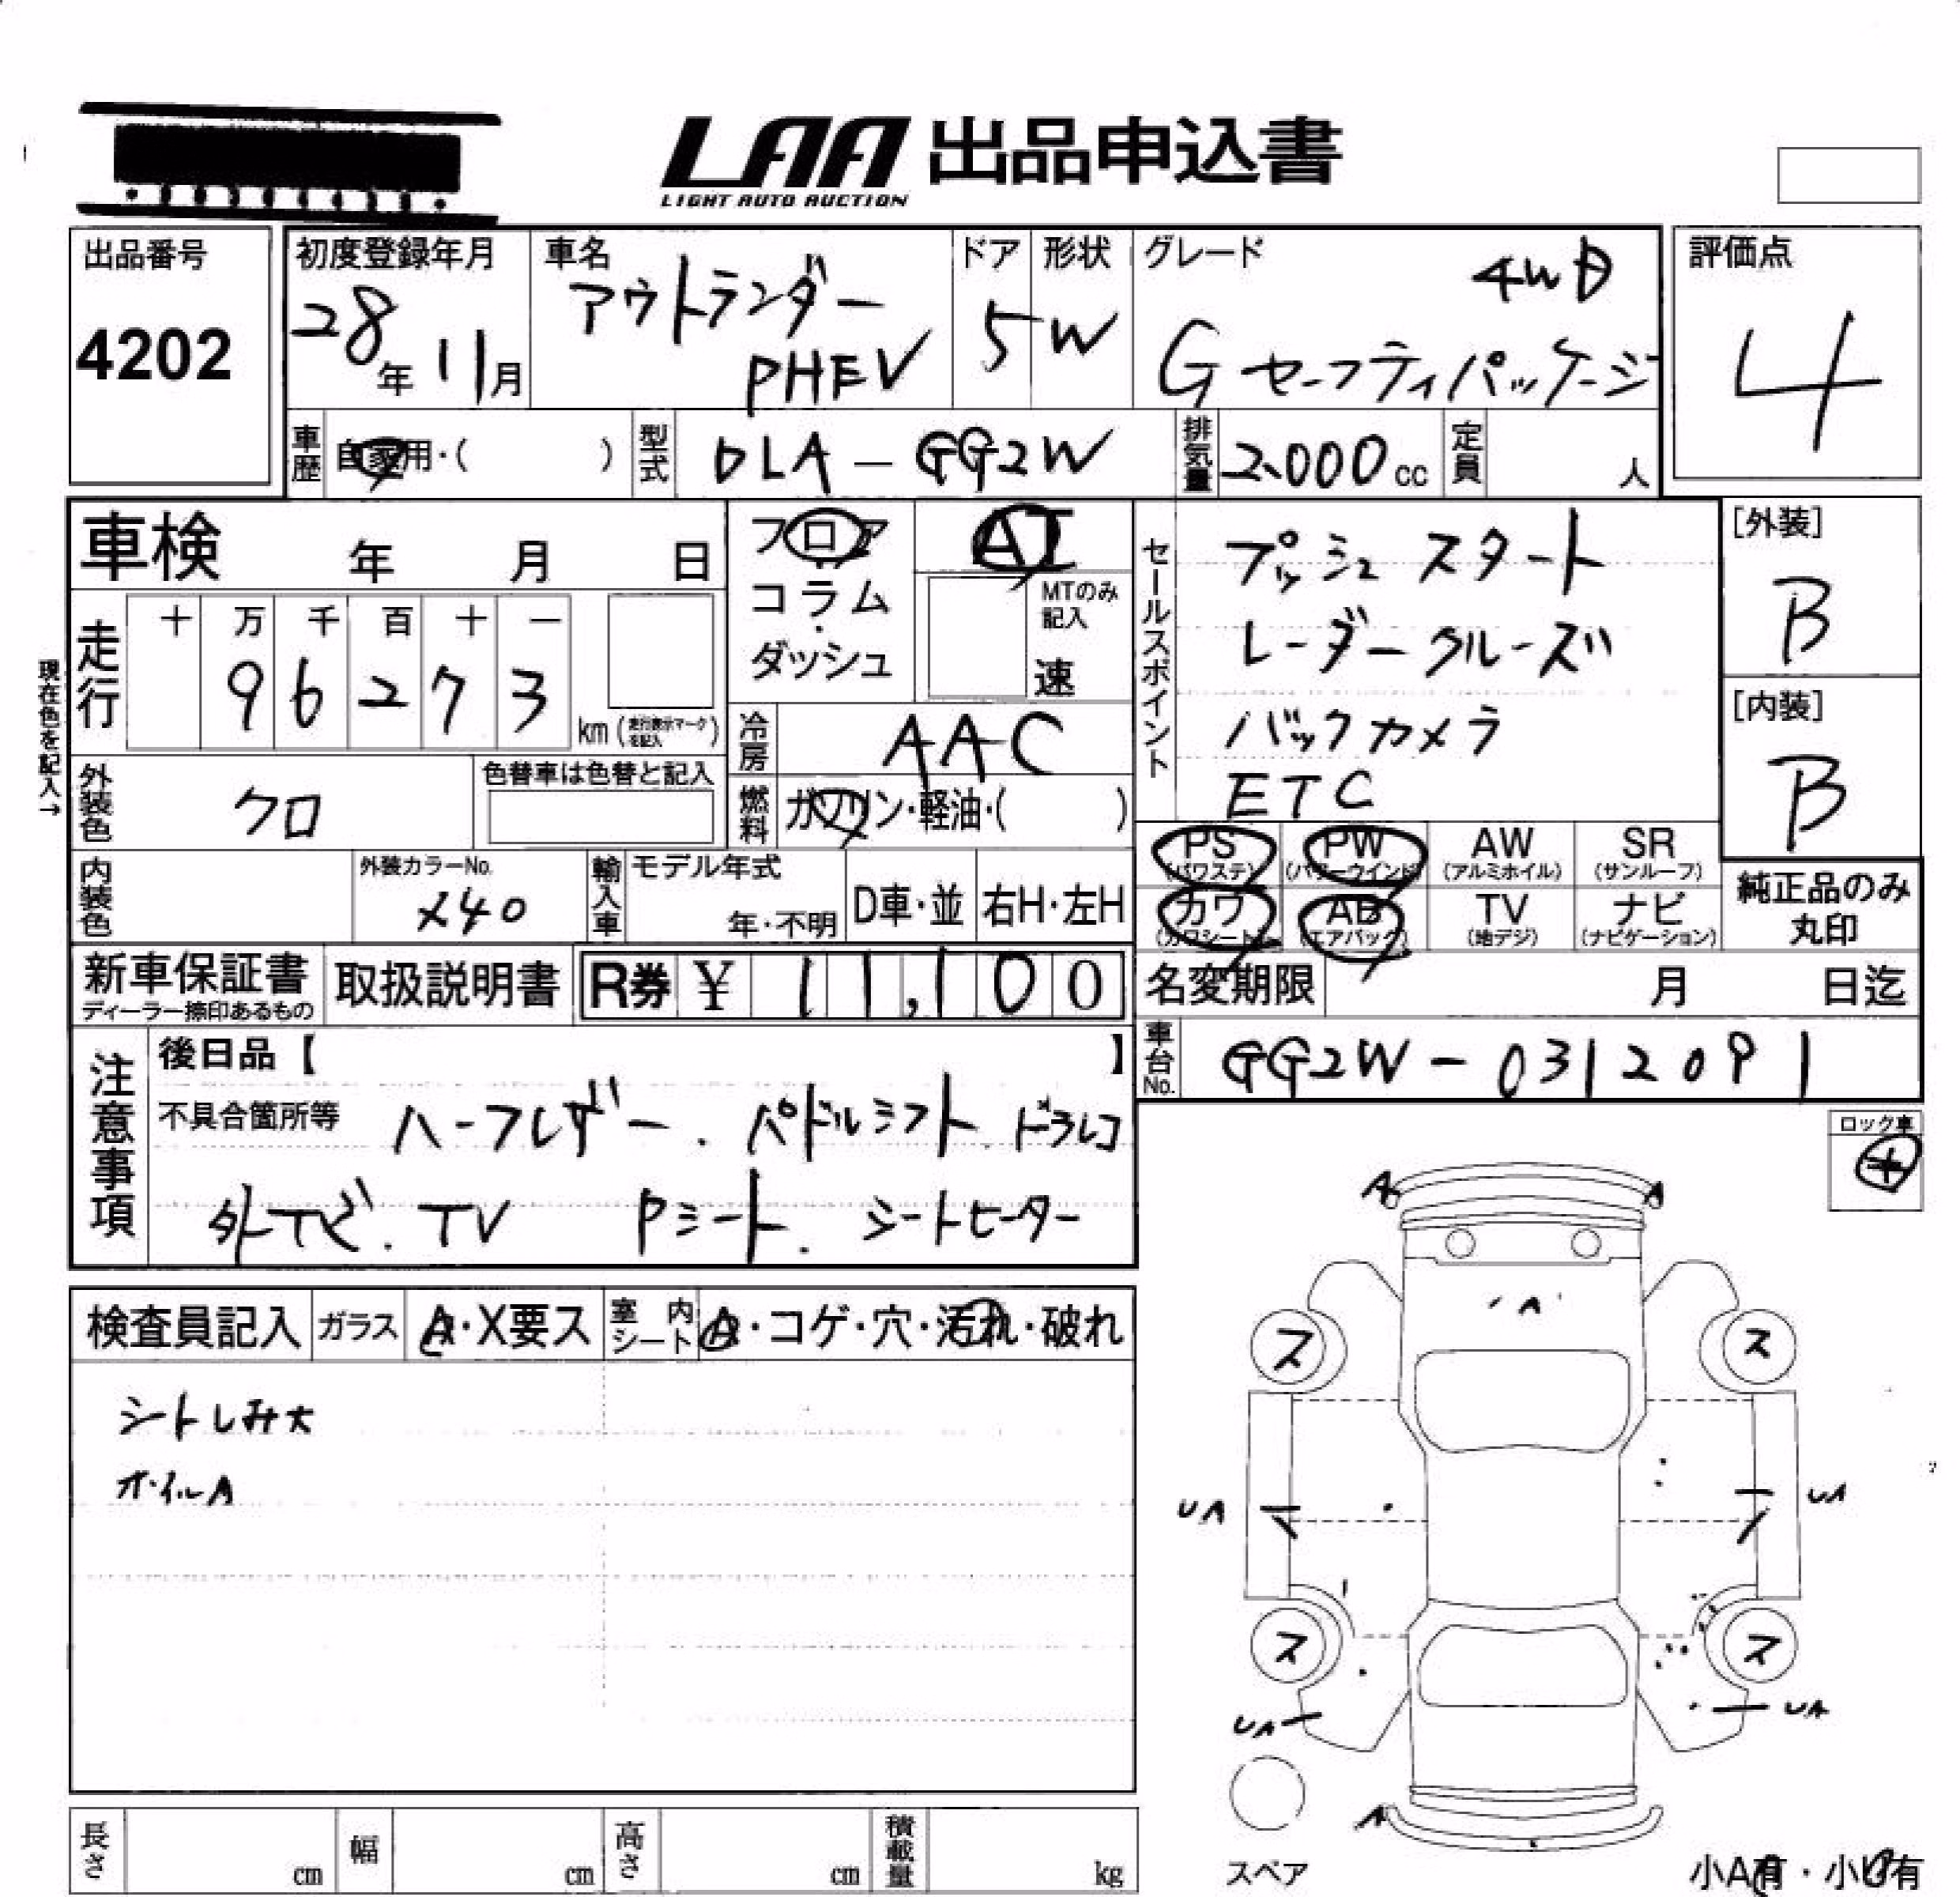 LAA 出品申込書
LIGHT AUTO AUCTION
出品番号
4202
初度登録年月
28年 11月
車名
アウトランダー
PHEV
ドア
5
形状
W
グレード
4WD
G セーフティパッケージ
評価点
4
車歴
自家用・( )
型式
DLA-GG2W
排気量
2.000cc
定員
人
車検 年 月 日
走行
十 万 千 百 十 一
9 6 2 7 3
km (走行表示マークを記入)
現在色を記入→
フロア
コラム
ダッシュ
AT
MTのみ
記入
速
冷房
AAC
燃料
ガソリン・軽油・( )
セールスポイント
プッシュスタート
レーダークルーズ
バックカメラ
ETC
[外装]
B
[内装]
B
外装色
クロ
色替車は色替と記入
内装色
外装カラーNo.
X40
輸入車
モデル年式
年・不明
D車・並
右H・左H
PS
(パワステ)
PW
(パワーウインド)
AW
(アルミホイル)
SR
(サンルーフ)
カワ
(カワシート)
AB
(エアバック)
TV
(地デジ)
ナビ
(ナビゲーション)
純正品のみ
丸印
新車保証書
ディーラー捺印あるもの
取扱説明書
R券 ¥ 11,100
名変期限 月 日迄
車台No.
GG2W-0312091
注意事項
後日品【 】
不具合箇所等 ハーフレザー. パドルシフト ドラレコ
外ナビ. TV Pシート. シートヒーター
ロック車
検査員記入
ガラス
A・X要ス
室内シート
A・コゲ・穴・汚れ・破れ
シートしみ大
ホイルA
A A
A
ス ス
UA UA
ス ス
UA UA
A
スペア
小A有・小U有
長さ cm
幅 cm
高さ cm
積載量 kg